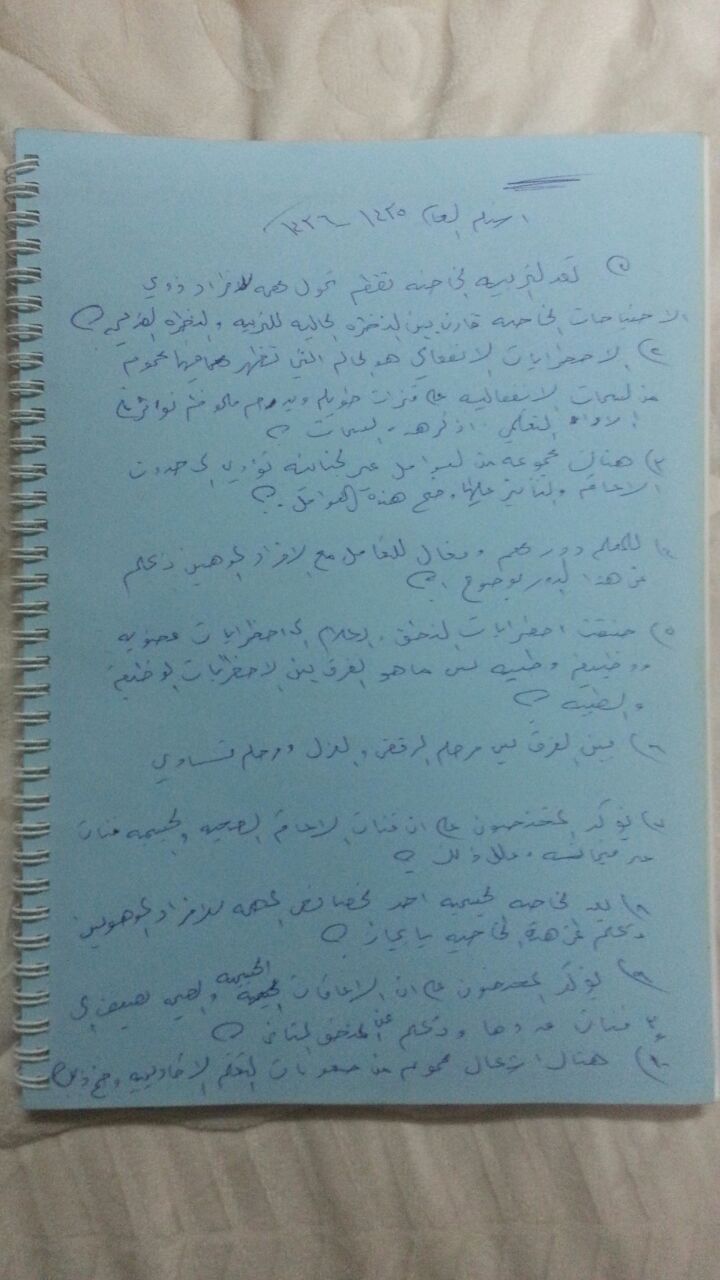 اسئله العام ١٤٣٥ - ١٤٣٦
١) تعد التربيه الخاصه تقدم تحول مهمه للافراد ذوي
الاحتياجات الخاصه قارن بين النظره الحاليه للتربيه والنظره القديمه؟
٢) الاضطرابات الانفعالي هو الحاله التي تظهر صاحبها مجموعه
من السمات الانفعاليه على فترات طويله
الاداء التعلمي. اذكر هذه السمات؟
٣) هناك مجموعه من العوامل غير الجينيه تؤدي الى حدوث
الاعاقه والتأثير عليها وضح هذه العوامل.؟
٤) للمعلم دور مهم وفعال للتعامل مع الافراد الموهبين تكلم
عن هذا الدور بوضوح؟
٥) صنفت اضطرابات النطق والكلام الى اضطرابات عضويه
ووظيفيه وطبيه بين ماهو الفرق بين الاضطرابات الوظيفيه
والطبيه؟
٦) مابين الفرق بين مرحله الرفض والعزل ومرحله تساوي
٧) يؤكد المختصون على ان فئات الاعاقه الصحيه والجسميه فئات
غير متجانسه وعلل ذلك؟
٨) تعد الخاصيه الجسميه احد الخصائص المهمه للافراد الموهوبين
تكلم عن هذة الخاصيه بايجاز؟
٩) يؤكد المختصون على ان الاعاقات الجسميه والصحيه تصنيف الى
٣ فئات عددها وتكلم عن التصنيف الثاني؟
١٠) هناك اشكال مجموعه من صعوبات التعلم الاكاديميه وضح ذلك؟